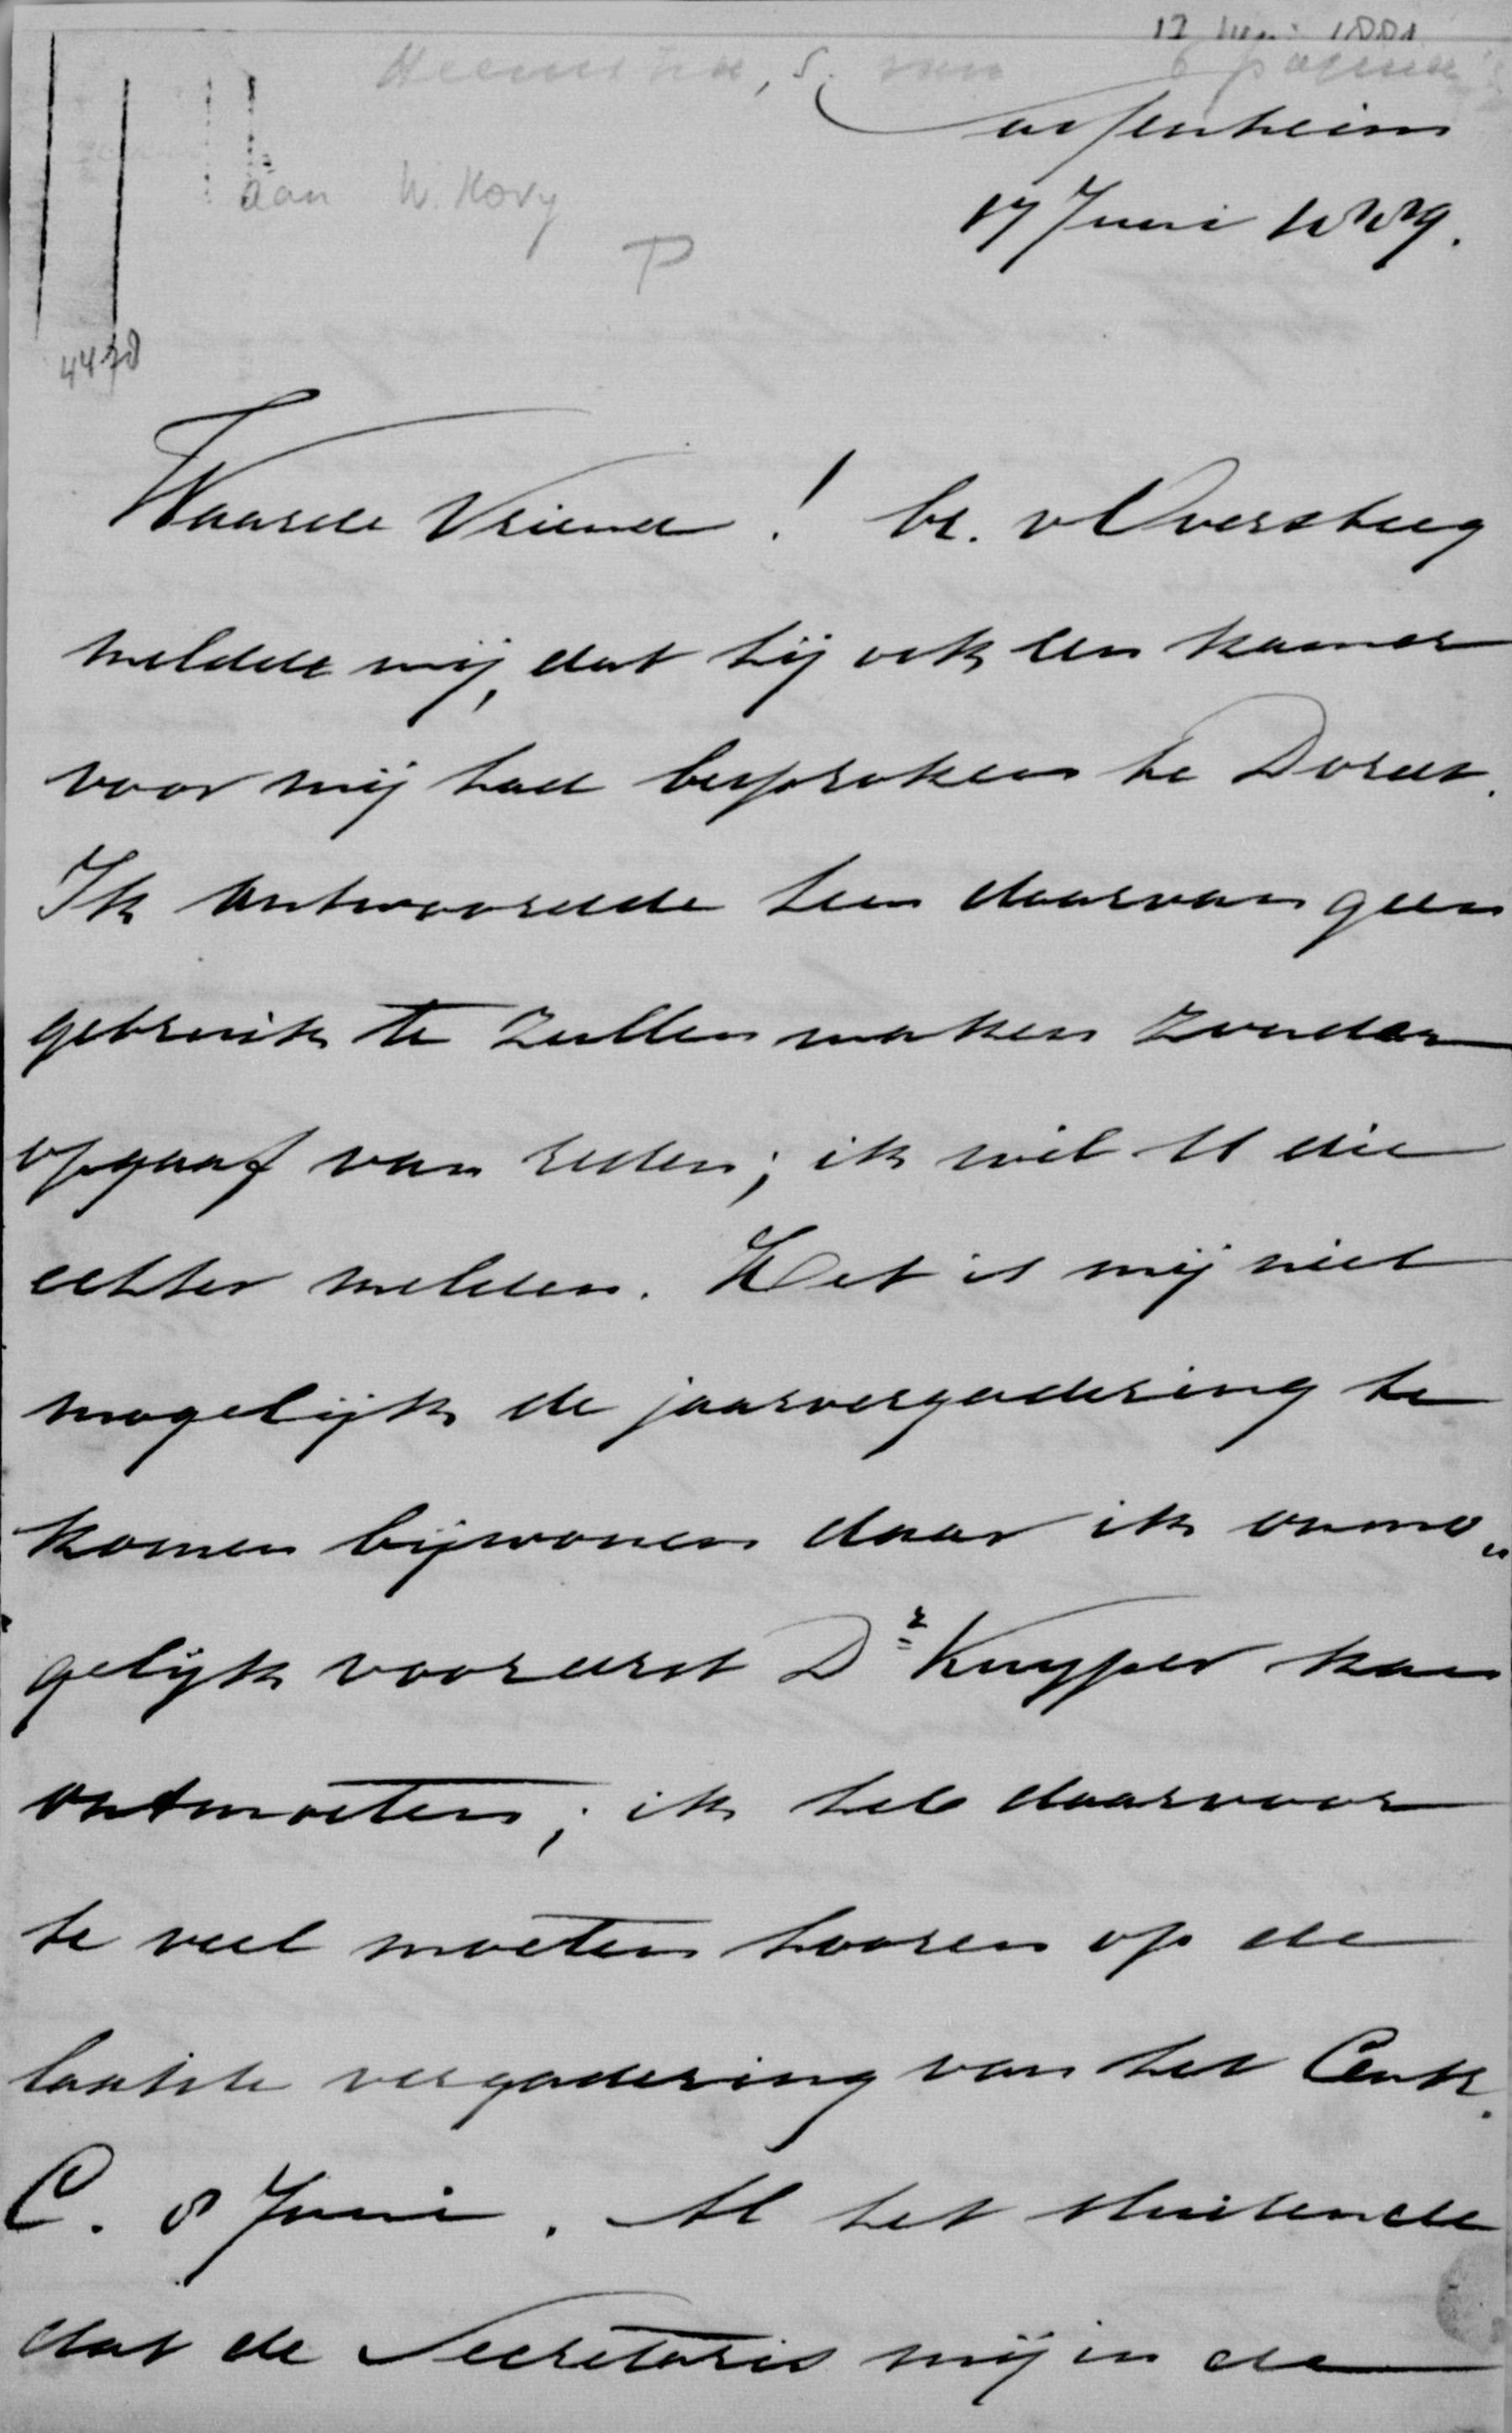 Heemstra, S. van
aan W. Hovy
P
4478
Sassenheim
17 Juni 1889.
Waarde Vriend! br. v Oversteeg
meldde mij, dat hij ook een kamer
voor mij had besproken te Dordt.
Ik antwoordde hem daarvan geen
gebruik te zullen maken zonder
opgaaf van reden; ik wil U die
echter melden. Het is mij niet
mogelijk de jaarvergadering te
komen bijwonen daar ik onmo„
„gelijk vooreerst Dr Kuyper kan
ontmoeten; ik heb daarvoor
te veel moeten hooren op de
laatste vergadering van het Centr.
C. 8 Juni. Al het stuitende
dat de Secretaris mij in de